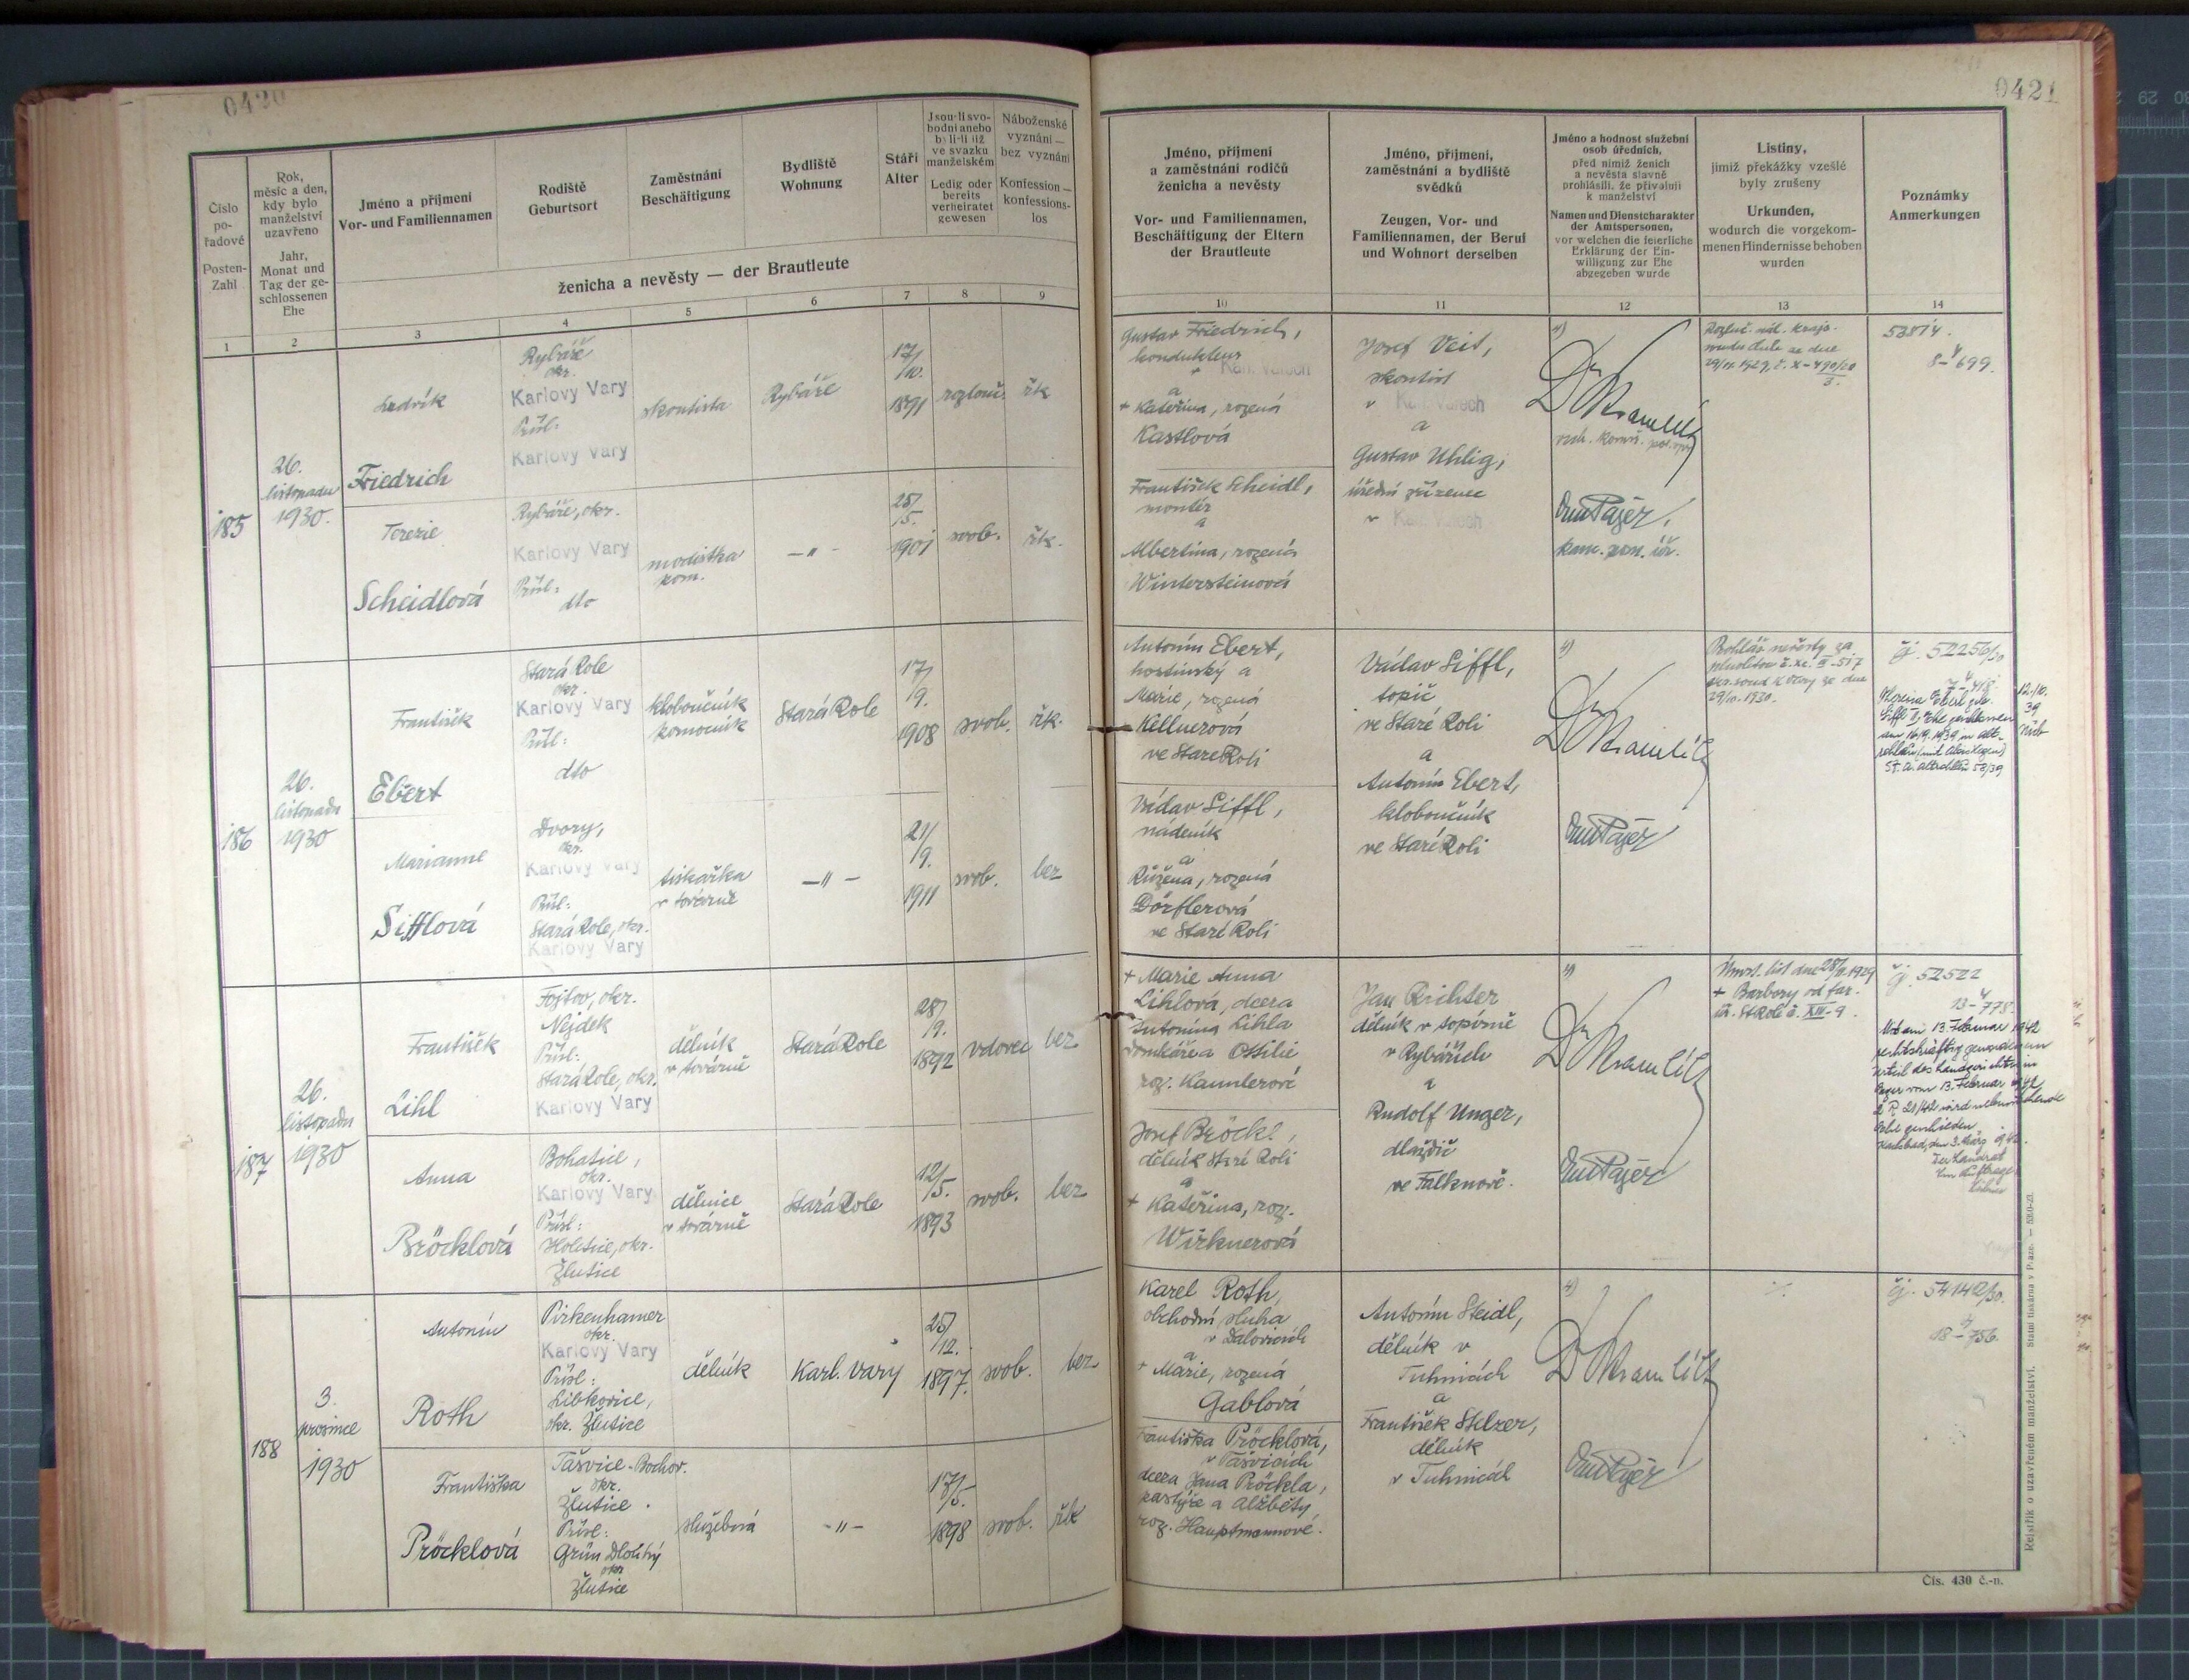 0420
Číslo
po-
řadové
Posten-
Zahl
Rok,
měsíc a den,
kdy bylo
manželství
uzavřeno
Jahr,
Monat und
Tag der ge-
schlossenen
Ehe
Jméno a příjmení
Vor- und Familiennamen
Rodiště
Geburtsort
Zaměstnání
Beschäftigung
Bydliště
Wohnung
Stáří
Alter
Jsou-li svo-
bodní anebo
byli-li již
ve svazku
manželském
Ledig oder
bereits
verheiratet
gewesen
Náboženské
vyznání —
bez vyznání
Konfession —
konfessions-
los
ženicha a nevěsty — der Brautleute
1
2
3
4
5
6
7
8
9
185
26.
listopadu
1930.
Ludvík
Friedrich
Rybáře
okr.
Karlovy Vary
Přísl:
Karlovy Vary
skontista
Rybáře
17/
/10.
1891
rozlouč.
řk
Terezie
Scheidlová
Rybáře, okr.
Karlovy Vary
Přísl:
dto
modistka
pom.
— " -
25/
/5.
1901
svob.
řk.
186
26.
listopadu
1930
František
Ebert
Stará Role
okr.
Karlovy Vary
Přísl:
dto
kloboučník
pomocník
Stará Role
17/
/9.
1908
svob.
řk.
Marianne
Sifflová
Dvory,
okr.
Karlovy Vary
Přísl:
Stará Role, okr.
Karlovy Vary
tiskařka
v továrně
— " —
21/
/9.
1911
svob.
bez
187
26.
listopadu
1930
František
Lihl
Fojtov, okr.
Nejdek
Přísl:
Stará Role, okr.
Karlovy Vary
dělník
v továrně
Stará Role
28/
/9.
1892
vdovec
bez
Anna
Bröcklová
Bohatice,
okr.
Karlovy Vary
Přísl:
okr.
Žlutice
dělnice
v továrně
Stará Role
12/
/5.
1893
svob.
bez
188
3.
prosince
1930
Antonín
Roth
Pirkenhamer
okr.
Karlovy Vary
Přísl:
Libkovice,
okr. Žlutice
dělník
Karl. Vary
25/
/12.
1897.
svob.
bez
Františka
Pröcklová
Tašvice - Bochov.
okr.
Žlutice.
Přísl:
Grün Dlouhý
okr.
Žlutice
služebná
- " -
17/
/5.
1898
svob.
řk
0421
Jméno, příjmení
a zaměstnání rodičů
ženicha a nevěsty
Vor- und Familiennamen,
Beschäftigung der Eltern
der Brautleute
Jméno, příjmení,
zaměstnání a bydliště
svědků
Zeugen, Vor- und
Familiennamen, der Beruf
und Wohnort derselben
Jméno a hodnost služební
osob úředních,
před nimiž ženich
a nevěsta slavně
prohlásili, že přivolují
k manželství
Namen und Dienstcharakter
der Amtspersonen,
vor welchen die feierliche
Erklärung der Ein-
willigung zur Ehe
abgegeben wurde
Listiny,
jimiž překážky vzešlé
byly zrušeny
Urkunden,
wodurch die vorgekom-
menen Hindernisse behoben
wurden
Poznámky
Anmerkungen
10
11
12
13
14
Gustav Friedrich,
kondukteur
v Karl. Varech
a
+ Kateřina, rozená
Kastlová
František Scheidl,
montér
a
Albertina, rozená
Wintersteinová
Josef Veit,
skontist
v Karl. Varech
a
Gustav Uhlig,
úřední zřízenec
v Karl. Varech
kanc. pom. úř.
53814.
8-4/699.
Antonín Ebert,
hostinský a
Marie, rozená
Kellnerová
ve Staré Roli
Václav Siffl,
nádeník
a
Růžena, rozená
Dörflerová
ve Staré Roli
Václav Siffl,
topič
ve Staré Roli
a
Antonín Ebert,
kloboučník
ve Staré Roli
29/10. 1930.
čj. 52256/30
12./10.
39
+ Marie Anna
Lihlová, dcera
Antonína Lihla
domkáře a Ottilie
roz. Kaunlerové
Josef Bröckl,
dělník Staré Roli
a
+ Kateřina, roz.
Wirknerová
Jan Richter
dělník v topírně
v Rybářích
a
Rudolf Unger,
dlaždič
ve Falknově.
Úmrt. list dne 28/11. 1929
+ Barbory od far.
ú. St. Role č. XIV-9.
čj. 52522
13-4/778.
13. Februar 1942
rechtskräftig gewordenem
Urteil des Landgerichtes in
Eger vom 13. Februar 1942
Ehe geschieden.
Karlsbad, den 3. März 1942.
Der Landrat
Im Auftrage
Karel Roth,
obchodní sluha
v Dalovicích
a
+ Marie, rozená
Gablová
Františka Pröcklová,
v Tašvicích
dcera Jana Pröckla,
pastýře a Alžběty
roz. Hauptmannové.
Antonín Steidl,
dělník v
Tuhnicích
a
František Stelzer,
dělník
v Tuhnicích
čj. 54142/30.
18-4/756.
Rejstřík o uzavřeném manželství. Státní tiskárna v Praze. — 5350-21.
Čís. 430 č.-n.